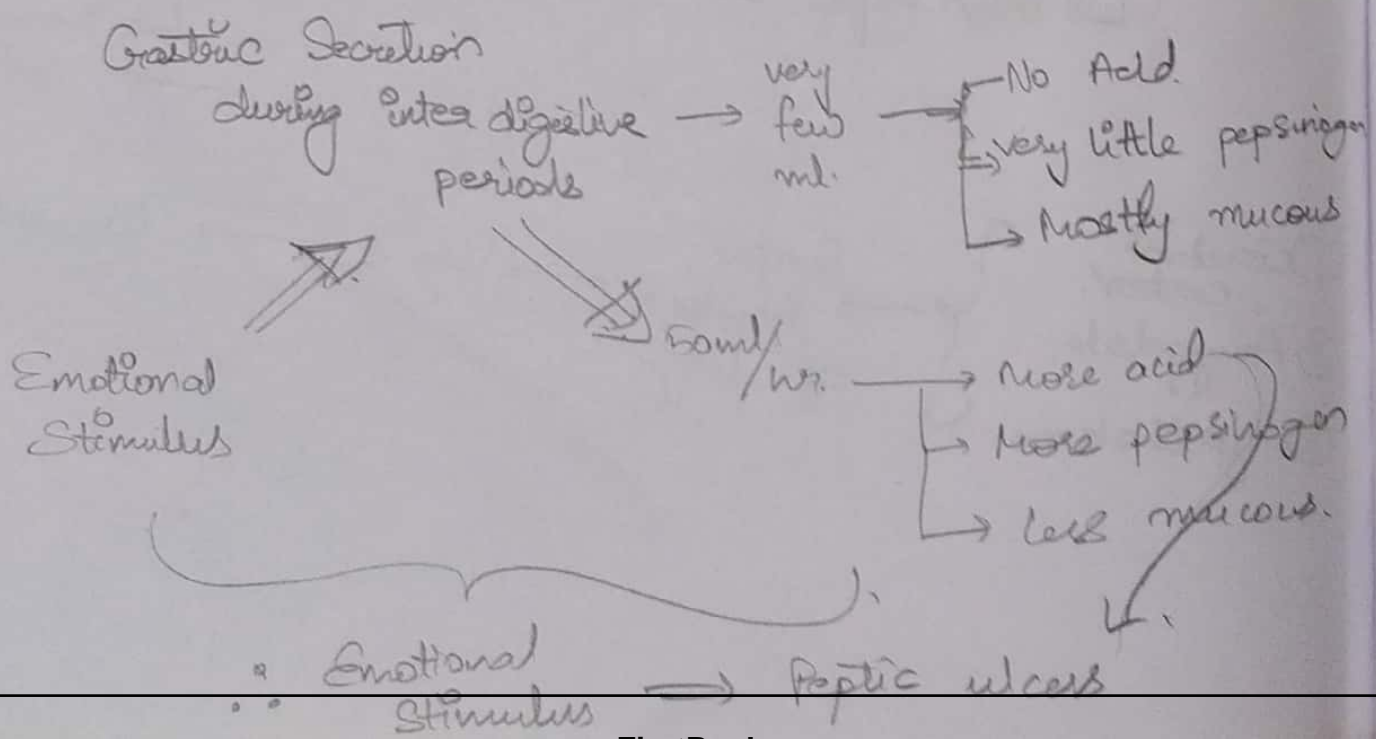 Gastric Secretion
during inter digestive
periods
→ very
few
ml.
No Acid
very little pepsinogen
Mostly mucous
Emotional
Stimulus
50ml/
hr.
More acid
More pepsinogen
Less mucous.
∴ Emotional
Stimulus
⇒ Peptic ulcers